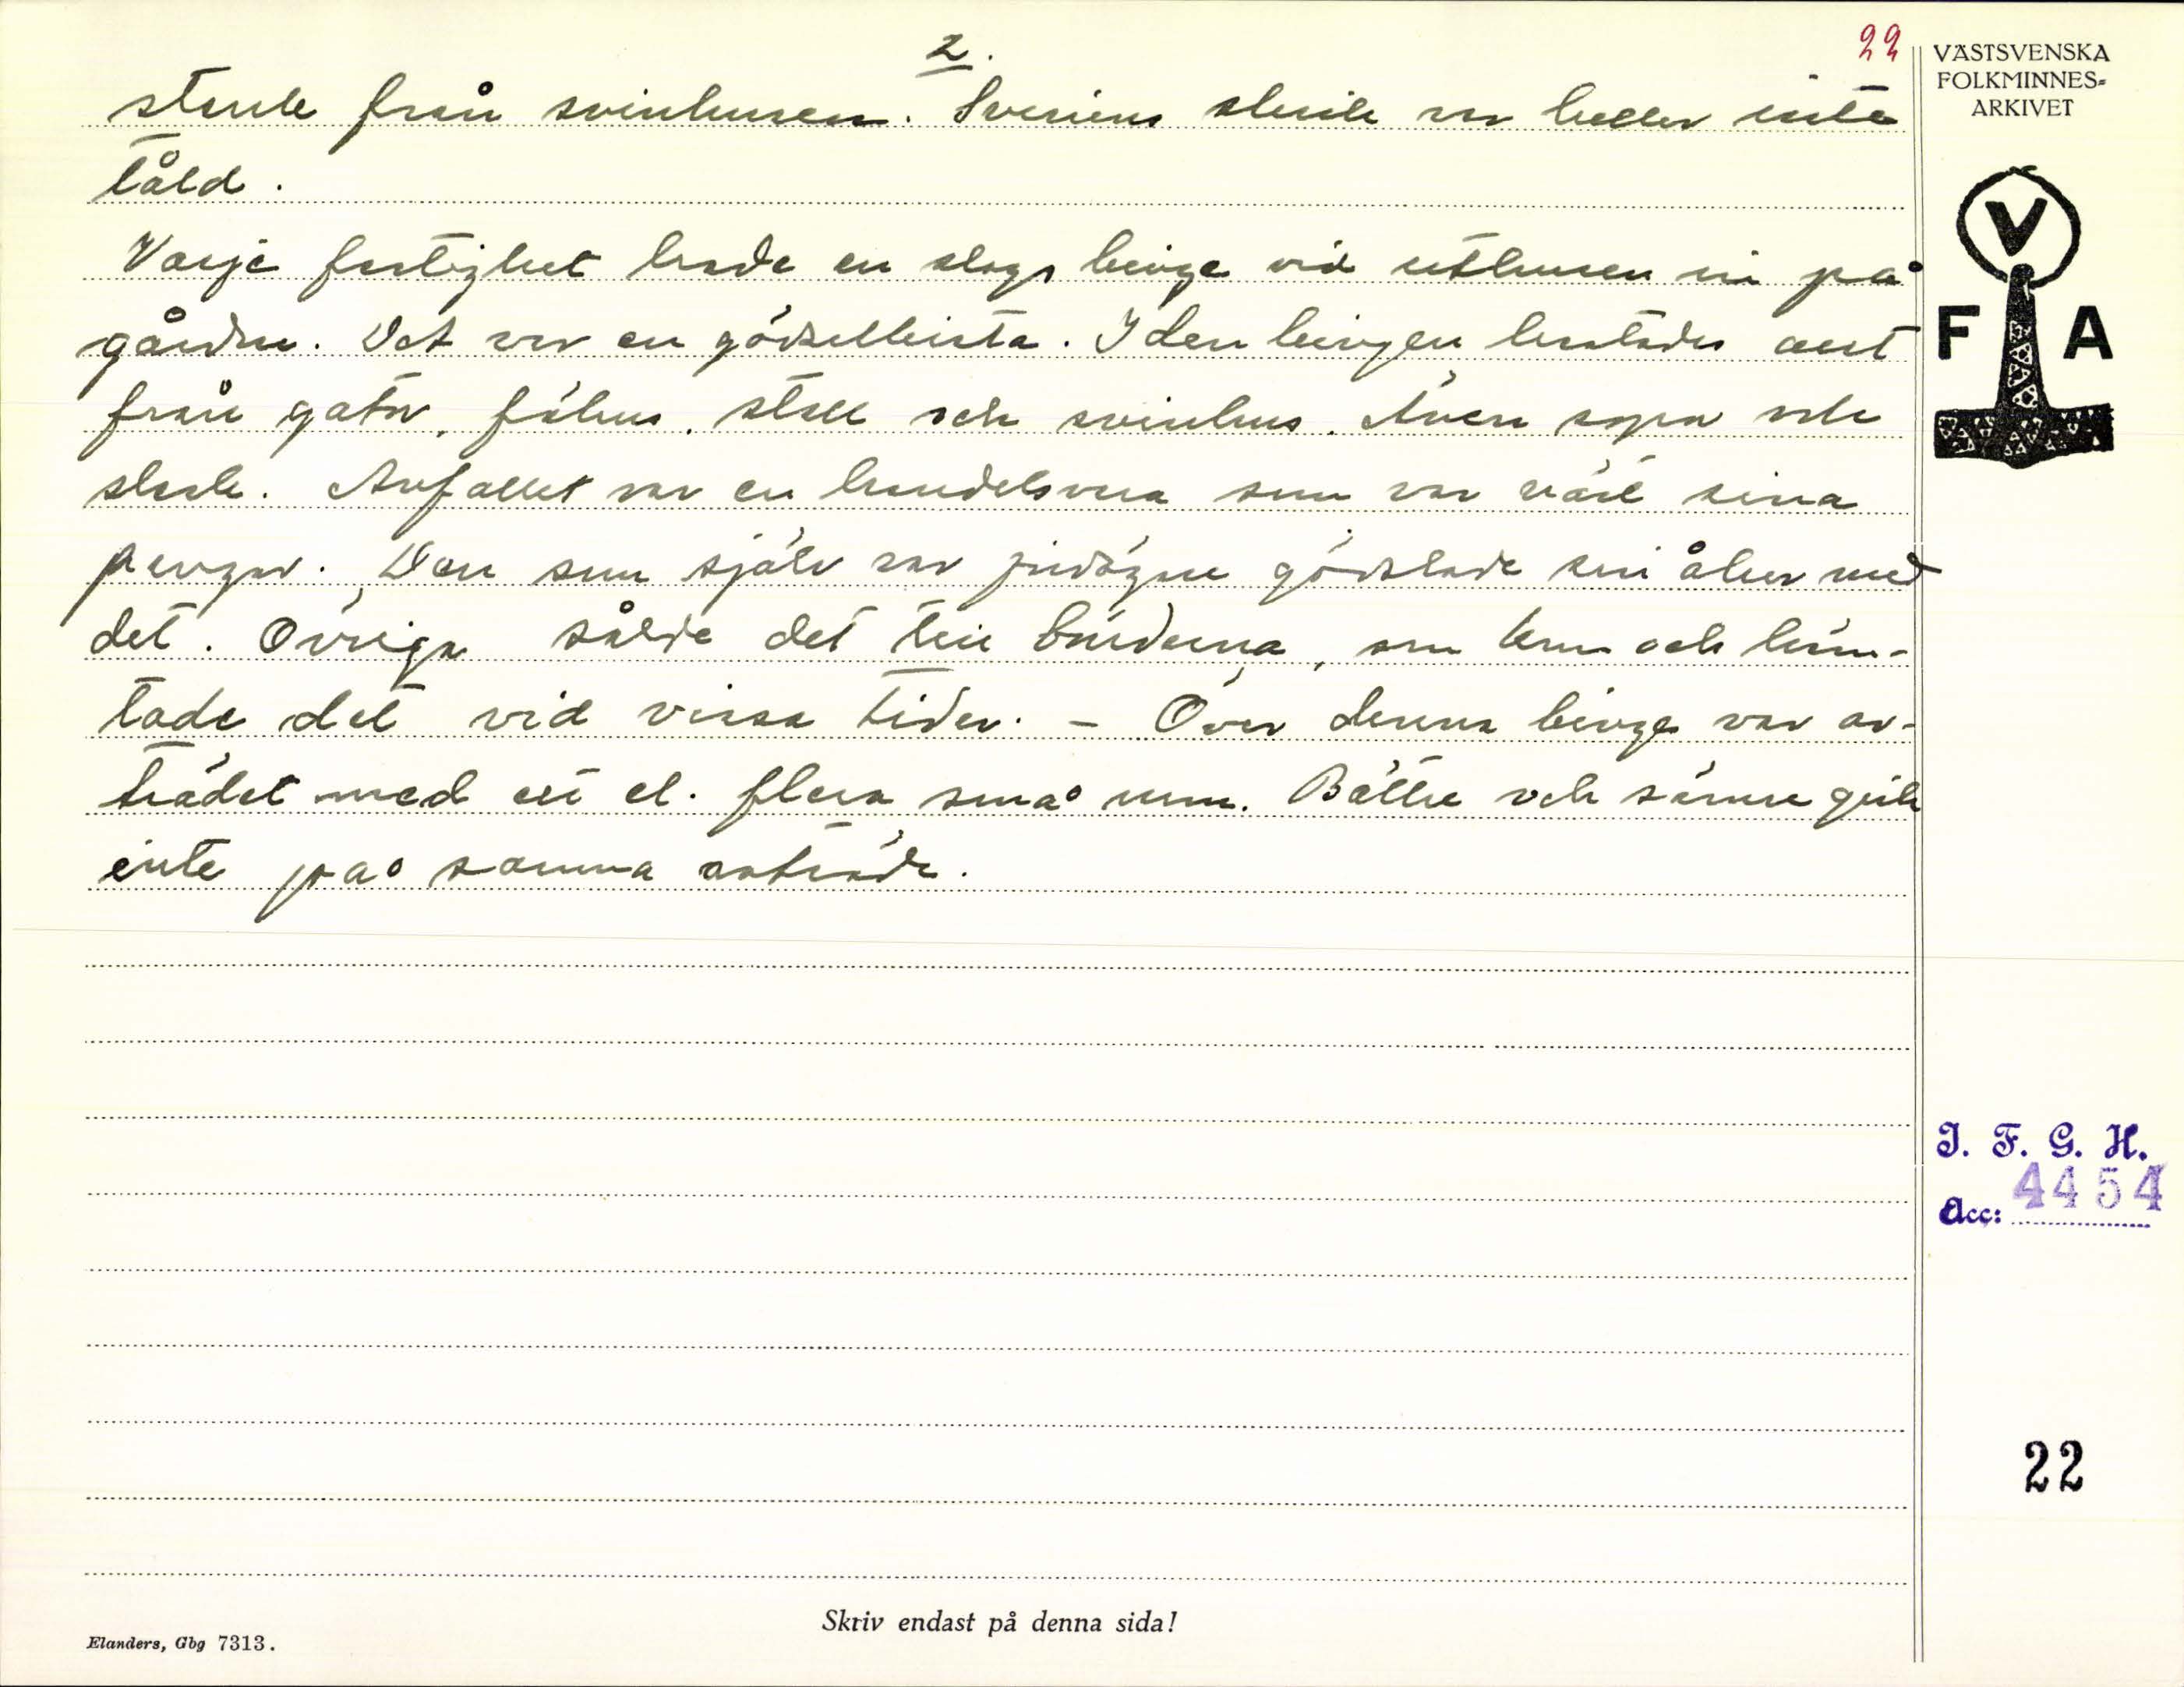 2.
22
stank från svinhusen. Svinens skrik var heller inte
tåld.
Varje fastighet hade en slags binge vid uthusen in på
gården. Det var en gödselkista. I den bingen kastades allt
från gator, fähus, stall och svinhus. Även sopor och
slask. Avfallet var en handelsvara som var värd sina
pengar. Den som själv var jordägare gödslade sin åker med
det. Övriga sålde det till bönderna, som kom och häm-
tade det vid vissa tider. – Över denna binge var av-
trädet med ett el. flera små rum. Bättre och sämre gick
inte på samma avträde.
VÄSTSVENSKA
FOLKMINNES=
ARKIVET
V
F A
I. F. G. H.
Acc: 4454
22
Skriv endast på denna sida!
Elanders, Gbg 7313.